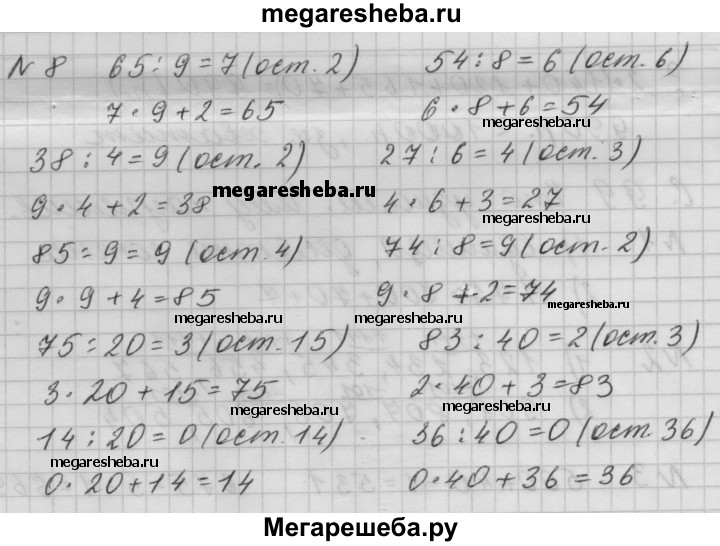 megaresheba.ru
N 8 65 : 9 = 7 (ост. 2) 54 : 8 = 6 (ост. 6)
7 · 9 + 2 = 65 6 · 8 + 6 = 54
megaresheba.ru
38 : 4 = 9 (ост. 2) 27 : 6 = 4 (ост. 3)
megaresheba.ru
9 · 4 + 2 = 38 4 · 6 + 3 = 27
megaresheba.ru
85 : 9 = 9 (ост. 4) 74 : 8 = 9 (ост. 2)
9 · 9 + 4 = 85 9 · 8 + 2 = 74
megaresheba.ru
megaresheba.ru megaresheba.ru
75 : 20 = 3 (ост. 15) 83 : 40 = 2 (ост. 3)
3 · 20 + 15 = 75 2 · 40 + 3 = 83
megaresheba.ru megaresheba.ru
14 : 20 = 0 (ост. 14) 36 : 40 = 0 (ост. 36)
megaresheba.ru megaresheba.ru
0 · 20 + 14 = 14 0 · 40 + 36 = 36
Мегарешеба.ру